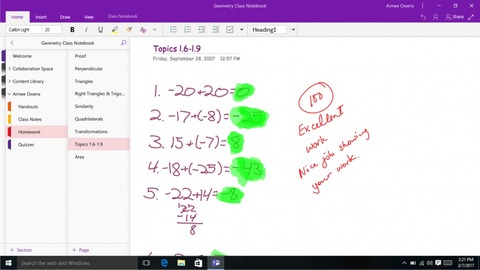 Geometry Class Notebook
Aimee Owens
File
Home
Insert
Draw
View
Class Notebook
Calibri Light
20
B
Heading1
Geometry Class Notebook
Welcome
Collaboration Space
Content Library
Aimee Owens
Handouts
Class Notes
Homework
Quizzes
Proof
Perpendicular
Triangles
Right Triangles & Trigo...
Similarity
Quadrilaterals
Transformations
Topics 1.6-1.9
Area
+ Section
+ Page
Topics 1.6-1.9
Friday, September 28, 2007 12:57 PM
1. -20+20=0
2. -17+(-8)=-25
3. 15+(-7)=8
4. -18+(-25)=-43
5. -22+14=-8
22
-14
8
100
Excellent
work
Nice job showing
your work.
3:21 PM
3/7/2017